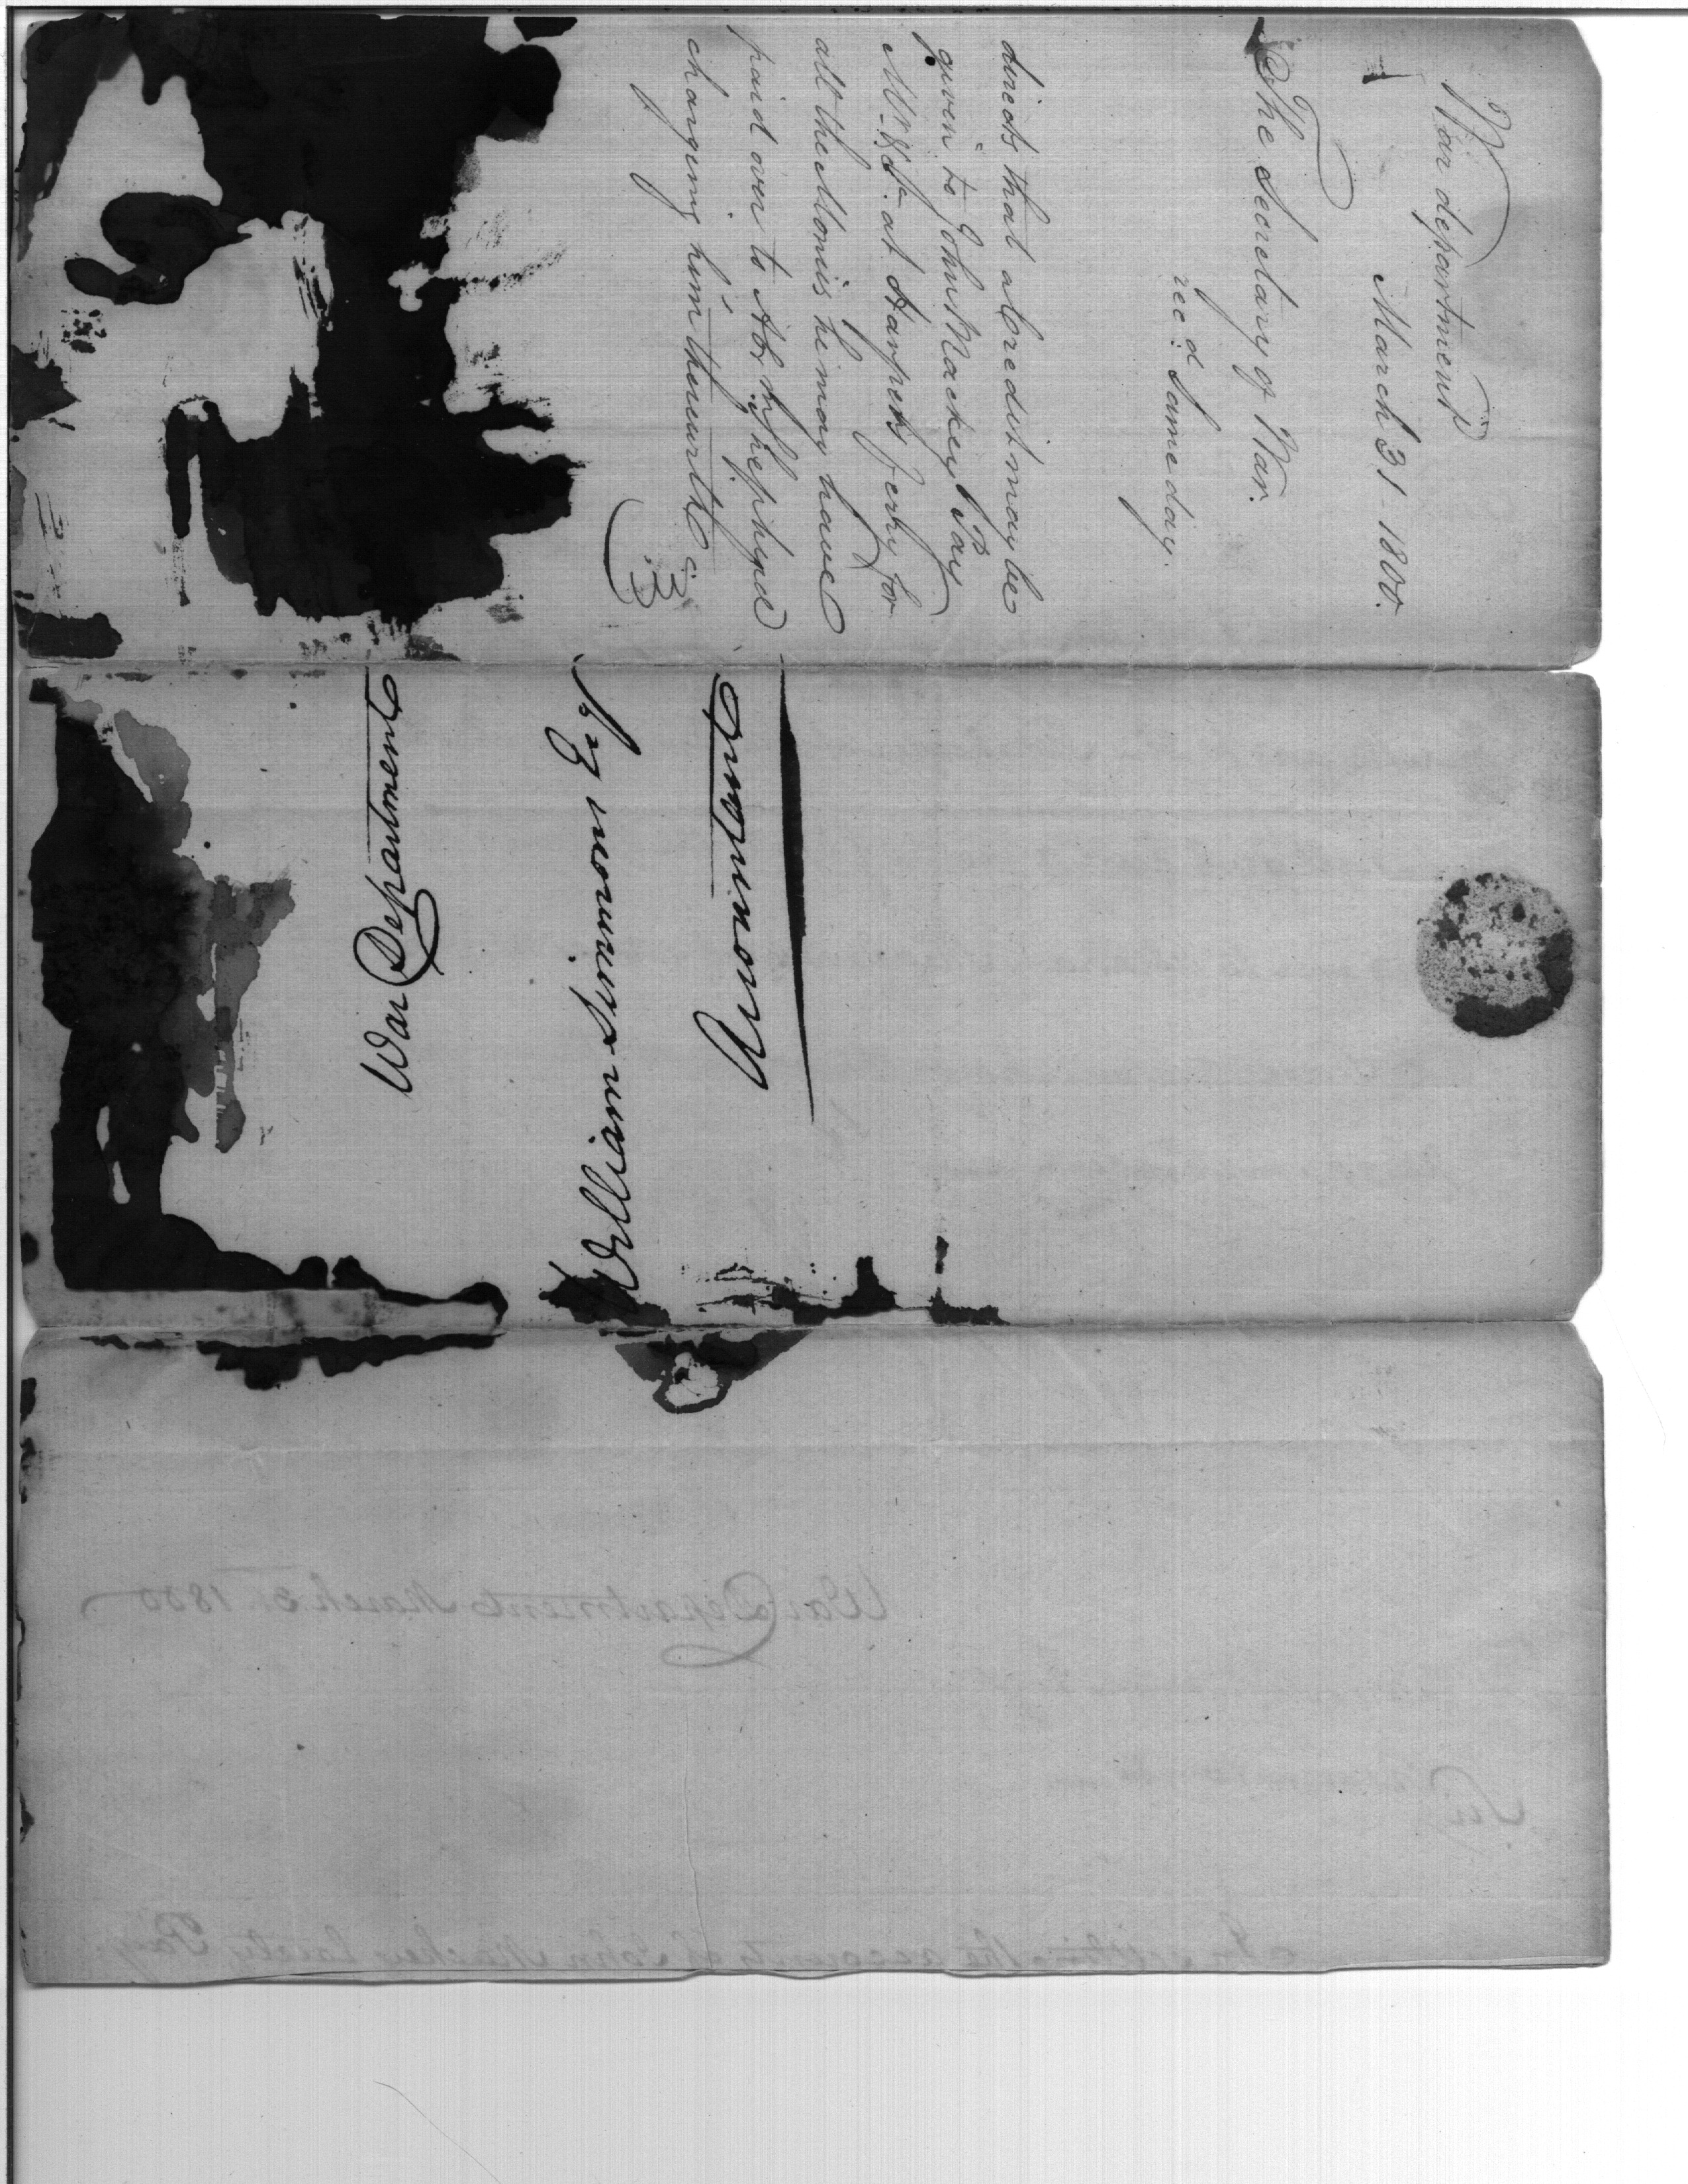 War department
March 31 - 1800.
The Secretary of War.
rec.d Same day.
directs that a Credit may be
given to John Mackey Pay
M.r & St. at Harpers ferry for
all the Monies he may have
paid over to
charging him therewith
B
War Department
William Simmons Esq
Accountant
War Department March 31 1800
Sir
In settling the accounts of John Mackey lately Pay